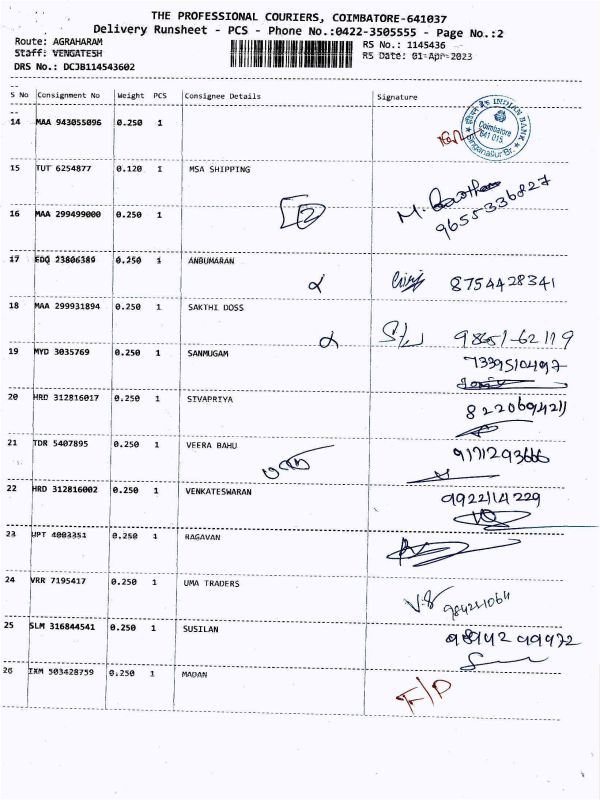 THE PROFESSIONAL COURIERS, COIMBATORE-641037
Delivery Runsheet - PCS - Phone No.:0422-3505555 - Page No.:2
Route: AGRAHARAM
RS No.: 1145436
Staff: VENGATESH
RS Date: 01-Apr-2023
DRS No.: DCJB114543602
S No Consignment No Weight PCS Consignee Details Signature
14 MAA 943055096 0.250 1
INDIAN BANK
Coimbatore
641 015
15 TUT 6254877 0.120 1 MSA SHIPPING
M.
9655336827
16 MAA 299499000 0.250 1
17 EDQ 23806389 0.250 1 ANBUMARAN
8754428341
18 MAA 299931894 0.250 1 SAKTHI DOSS
98651-62119
19 MYD 3035769 0.250 1 SANMUGAM
7339510497
20 HRD 312816017 0.250 1 SIVAPRIYA
8220694211
21 TDR 5407895 0.250 1 VEERA BAHU
22 HRD 312816002 0.250 1 VENKATESWARAN
9922114229
23 UPT 4003351 0.250 1 RAGAVAN
24 VRR 7195417 0.250 1 UMA TRADERS
25 SLM 316844541 0.250 1 SUSILAN
26 IXM 503428759 0.250 1 MADAN
F/D